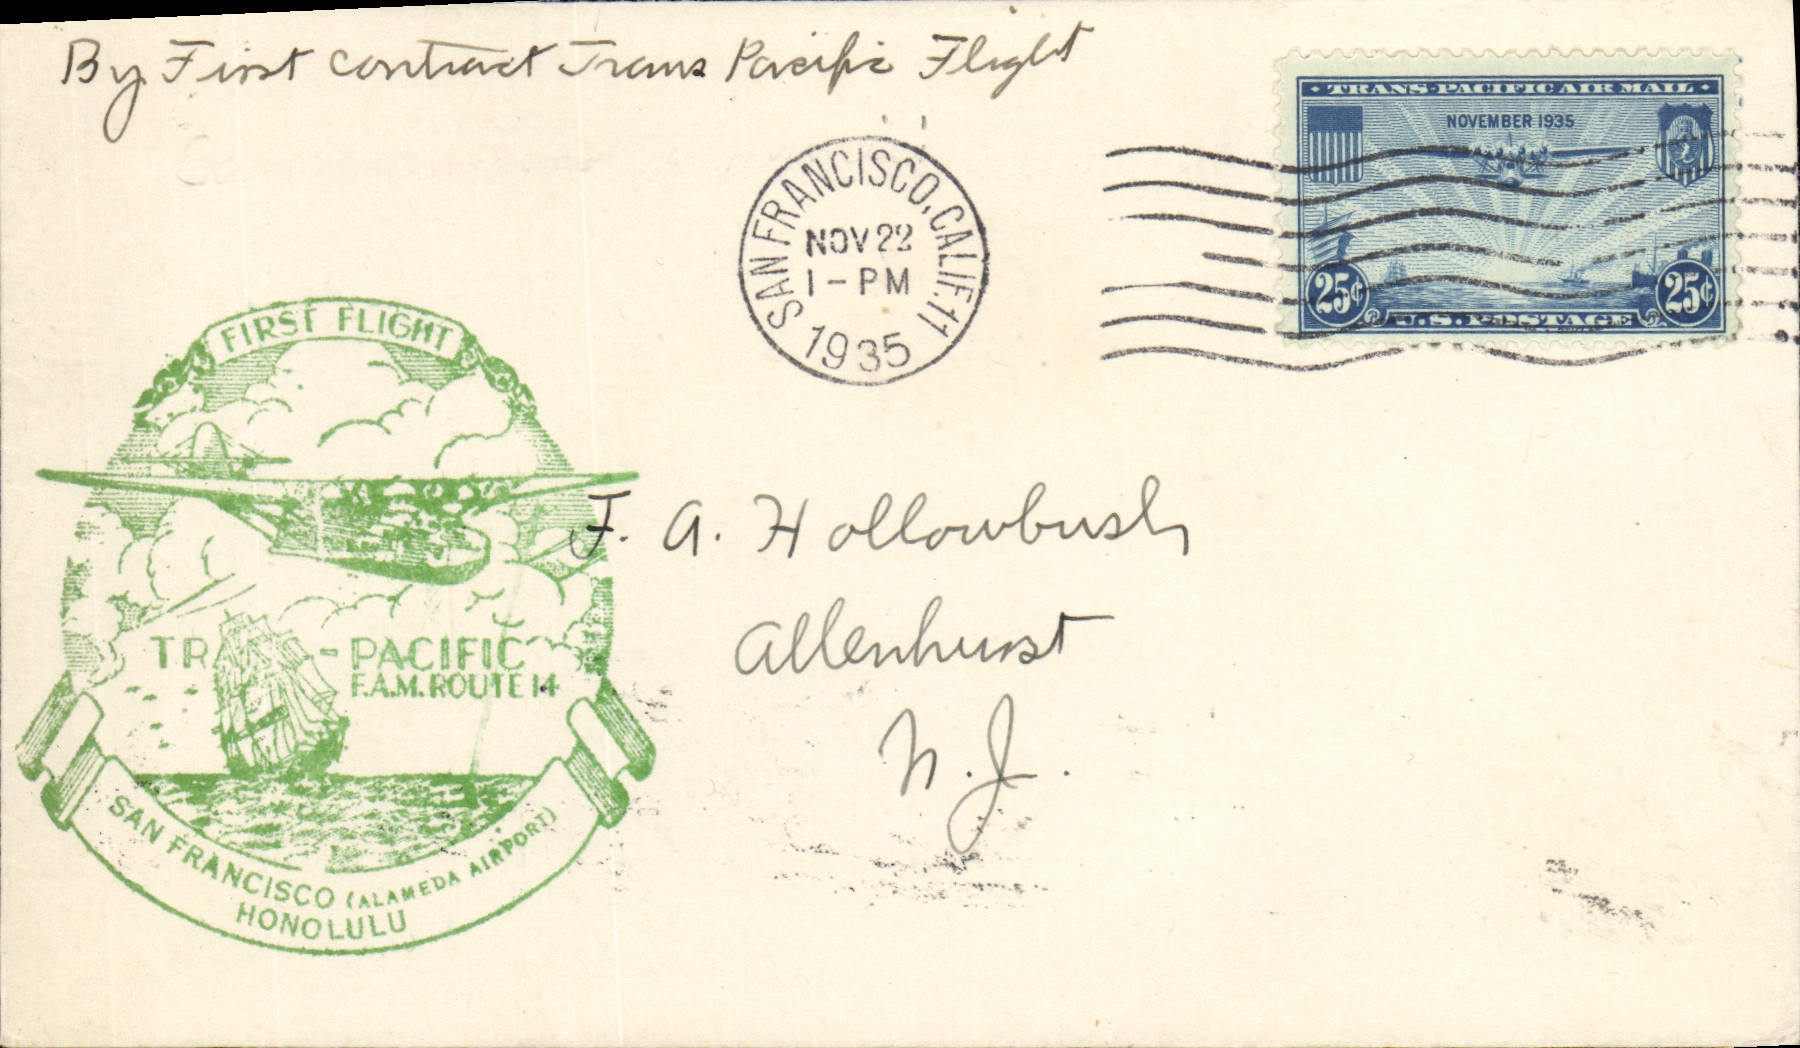 By First Contract Trans Pacific Flight
TRANS-PACIFIC AIR MAIL
NOVEMBER 1935
25¢ 25¢
U.S. POSTAGE
SAN FRANCISCO, CALIF. 11
NOV 22
1-PM
1935
FIRST FLIGHT
F. A. Hollowbush
Allenhurst
N.J.
TR - PACIFIC
F.A.M. ROUTE 14
SAN FRANCISCO (ALAMEDA AIRPORT)
HONOLULU